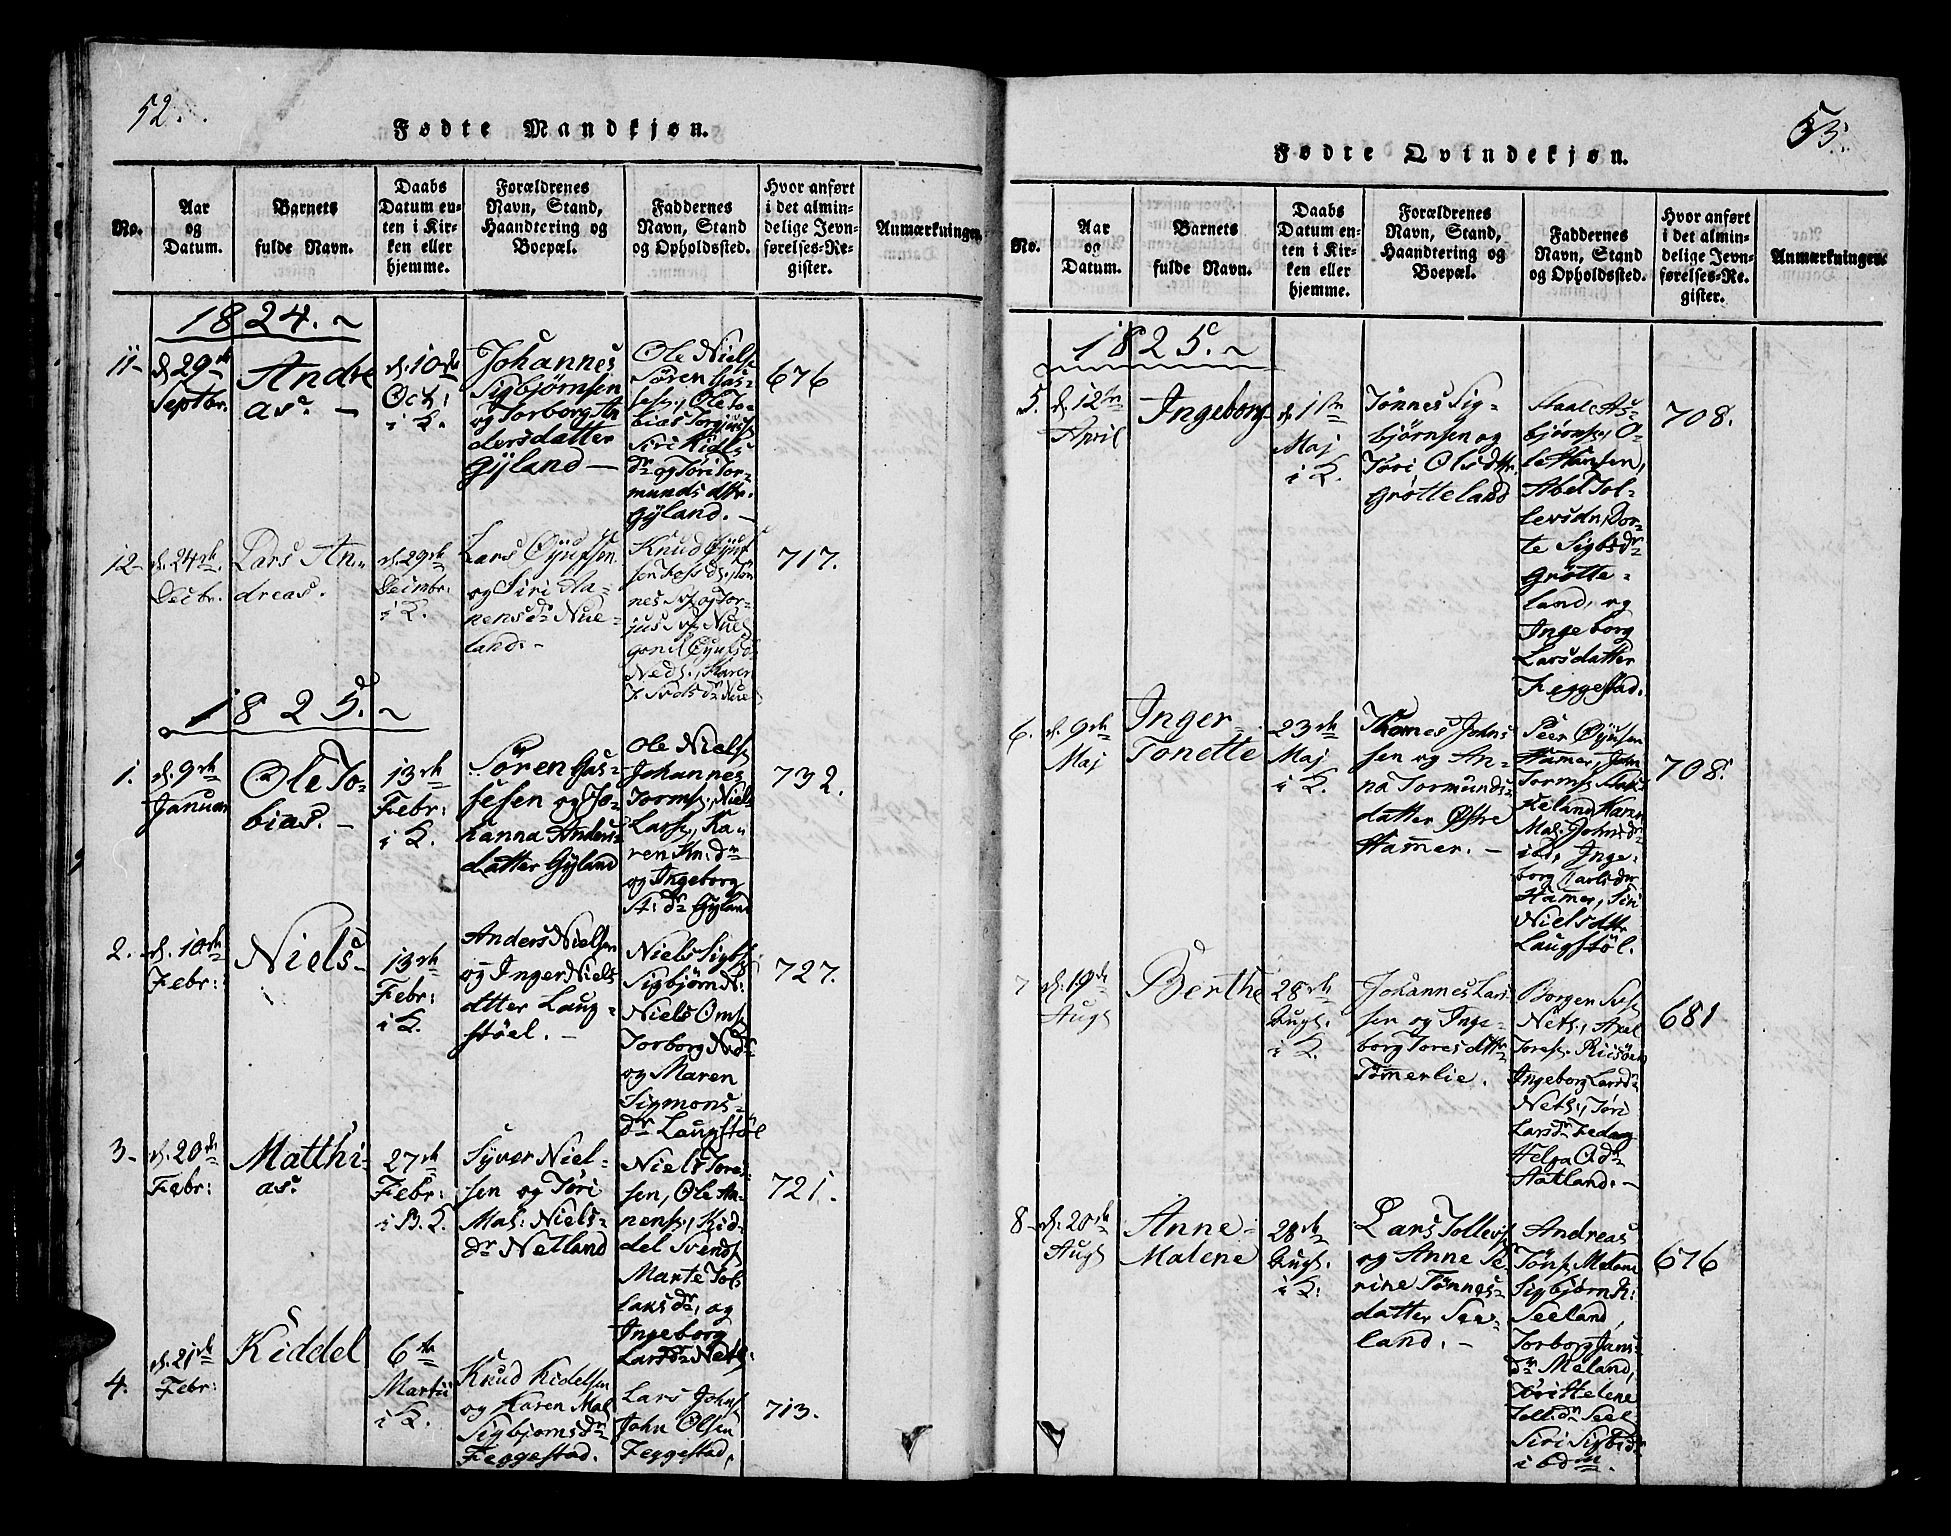 52.
Fødte Mandkjøn.
No.
Aar
og
Datum.
Barnets
fulde Navn.
Daabs
Datum en-
ten i Kir-
ken eller
hjemme.
Forældrenes
Navn, Stand,
Haandtering og
Boepæl.
Faddernes
Navn, Stand
og Opholdssted.
Hvor anført
i det almin-
delige Jevn-
førelses-Re-
gister.
Anmærkninger.
1824.
11-
d. 29de
Septbr.
Andre
as. -
d. 10de
Octr:
i K.
Johannes
Sigbjørnsen
og Torborg An
dersdatter
Gÿland -
Ole Niels
Søren Gas-
Ole To-
bias
Siri
dr og Tori Tor-
munds dttr.
Gÿland. -
676
12-
d. 24de
Decbr.
Lars An-
dreas.
d. 29de
Decembr.
i K.
Lars Öÿufsen
og Siri Ha-
nensdr Nue-
land. -
Knud Öÿuf
717.
1825.
1.
d. 9de
Januari
Ole To-
bias. -
13de
Febr:
i K.
Søren Gas-
sesen og Jo-
hanna Anders
datter Gÿland
Ole Niels
Johannes
Torms, Niels
Larss, Ka-
ren Kn: dr
og Ingeborg
A: dr Gÿland
732.
2.
d. 10de
Febr:
Niels-
13de
Febr:
i K.
Anders Nielsen
og Inger Niels
dtter Laug-
støel. -
Niels Sigb
Sigbjørn N:
Niels Oms
Torborg N.dr
og Maren
Sigmons-
dr Laugstøl
727.
3-
d. 20de
Febr:
Matthi-
as.
27de
Febr:
i B. K.
Syver Niel-
sen og Tori
Mal: Niels-
dr Netland
Niels Tores-
sen, Ole An-
nens, Kid-
del Svends
Marte Tol-
laksdr, og
Ingeborg
Larsdr Netl:
721.
4.
d. 21de
Febr:
Kiddel
6te
Martii
i K.
Knud Kidelsen
og Karen Mal
Sigbjørnsdr
Feggestad.
Lars Johns
John Olsen
Feggestad,
713.
53.
Fødte Qvindekjøn.
No.
Aar
og
Datum.
Barnets
fulde Navn.
Daabs
Datum en-
ten i Kir-
ken eller
hjemme.
Forældrenes
Navn, Stand,
Haandtering og
Boepæl.
Faddernes
Navn, Stand
og Opholdssted.
Hvor anført
i det almin-
delige Jevn-
førelses-Re-
gister.
Anmærkninger.
1825.
5.
d. 12te
April
Ingeborg
d. 1ste
Maj
i K.
Tønnes Sig-
bjørnsen og
Tori Olsdttr.
Grøtteland
Staale As-
bjørns, O-
le Hansen,
Abel Tol-
levsdr, Dor-
te Sigbsdr
Grøtte-
land, og
Ingeborg
Larsdatter
Feggestad.
708.
6.
d. 9de
Maj
Inger-
Tonette
23de
Maj
i K.
Thomes Johns
sen og An-
na Tormunds-
datter Østre
Hamer. -
Peer Öÿufsen
Hamer, John
ibd, Inge-
borg Carlsdr
Hamer, Siri
Nielsdttr
Laugstöl.
708.
7
d. 19de
Augs
Berthe
28de
Augs.
i K.
Johannes Lar-
sen og Inge-
borg Toresdttr
Tømerlie.
Ingeborg Larsdr
Netl:, Tori
Helga O.dr
Hatland. -
681
8-
d. 20de
Augs
Anne-
Malene
28de
Augs.
i K.
Lars Tollevs
og Anne Se-
rine Tønnes-
datter See-
land. -
Andreas
Töns. Meland
Sigbjørn K:
Seeland,
Torborg Jans-
dr Meland,
Tori Helene
Toll:dr Seel
Siri Sigbsdr
ibdm.
676